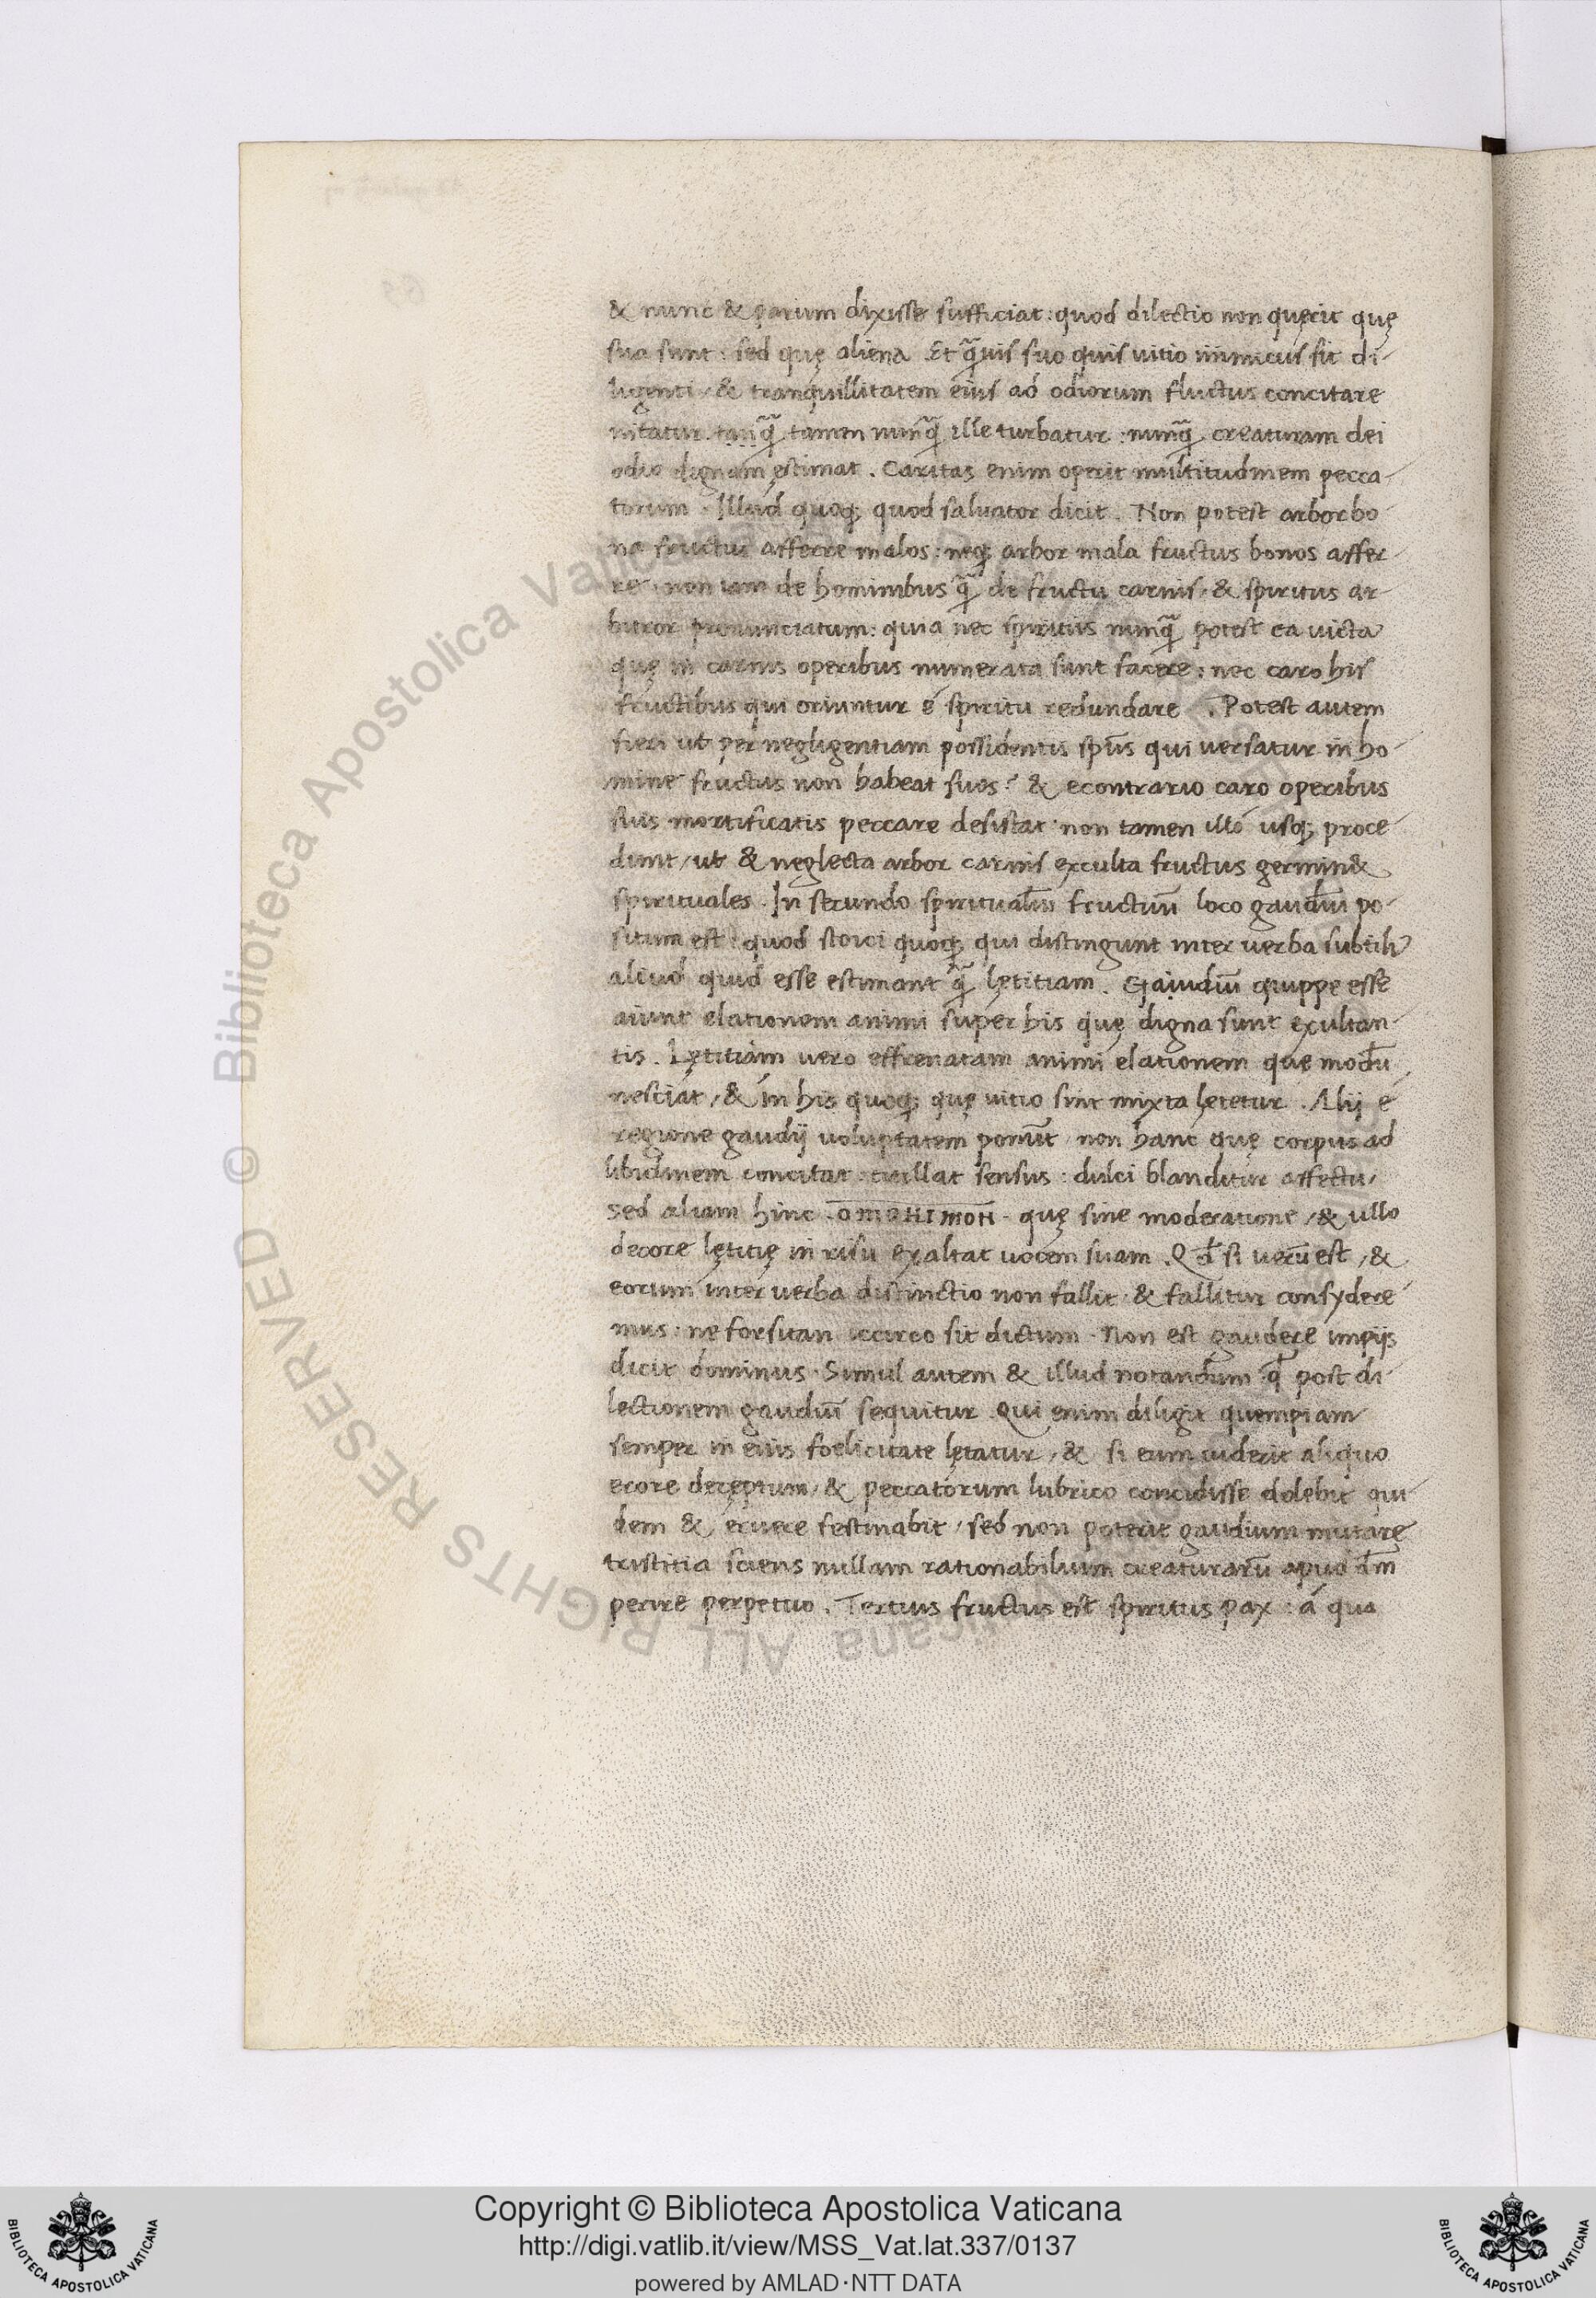 & nunc & parum dixisse sufficiat: quod dilectio non quęrit quę
sua sunt: sed quę aliena. Et q̄uis suo quis uitio inimicus sit di-
ligenti, & tranquillitatem eius ad odiorum fluctus concitare
nitatur tanq̄ tamen nunq̄ ille turbatur: nunq̄ creaturam dei
odio dignam ęstimat. Caritas enim operit multitudinem pecca-
torum. Illud quoq; quod saluator dicit. Non potest arbor bo-
na fructus afferre malos: neq; arbor mala fructus bonos affer-
re, non tam de hominibus q̄ de fructu carnis, & spiritus ar-
bitror pronunciatum: quia nec spiritus nunq̄ potest ea victa
quę in carnis operibus numerata sunt facere: nec caro his
fructibus qui oriuntur é spiritu redundare. Potest autem
fieri ut per negligentiam possidentis sp̄us qui uersatur in ho-
mine fructus non habeat suos: & econtrario caro operibus
suis mortificatis peccare desistat: non tamen illó usq; proce
dunt, ut & neglecta arbor carnis exculta fructus germin&
spirituales. In secundo spiritualiū fructuū loco gaudiū po-
situm est: quod stoici quoq; qui distingunt inter uerba subtilr̄
aliud quid esse estimant q̄ lętitiam. Gaiudiū quippe esse
aiunt elationem animi super his quę digna sunt exultan-
tis. Lętitiam uero effrenatam animi elationem que modū
nesciat, & in his quoq; quę uitio sint mixta lętetur. Alij é
regione gaudij uoluptatem ponūt, non hanc quę corpus ad
libidinem concitat: titillat sensus: dulci blanditur affectu,
sed aliam hinc. o̅m̅o̅n̅i̅m̅o̅n̅. quę sine moderatione, & ullo
decore lętitię in risu exaltat uocem suam. Qd̄ si uerū est, &
eorum inter uerba distinctio non fallit & fallitur consydere
mus: ne forsitan iccirco sit dictum. Non est gaudere impijs
dicit dominus. Simul autem & illud notandum qd̄ post di-
lectionem gaudiū sequitur. Qui enim diligit quempiam
semper in eius foelicitate lętatur, & si eum uiderit aliquo
ecore deceptum, & peccatorum lubrico concidisse dolebit qui
dem & eruere festinabit, sed non poterit gaudium mutare
tristitia sciens nullam rationabilium creaturarū apud dm̄
perire perpetuo. Tertius fructus est spiritus pax: á qua
© Biblioteca Apostolica Vaticana
ALL RIGHTS RESERVED
Copyright © Biblioteca Apostolica Vaticana
http://digi.vatlib.it/view/MSS_Vat.lat.337/0137
powered by AMLAD·NTT DATA
BIBLIOTECA APOSTOLICA VATICANA
BIBLIOTECA APOSTOLICA VATICANA